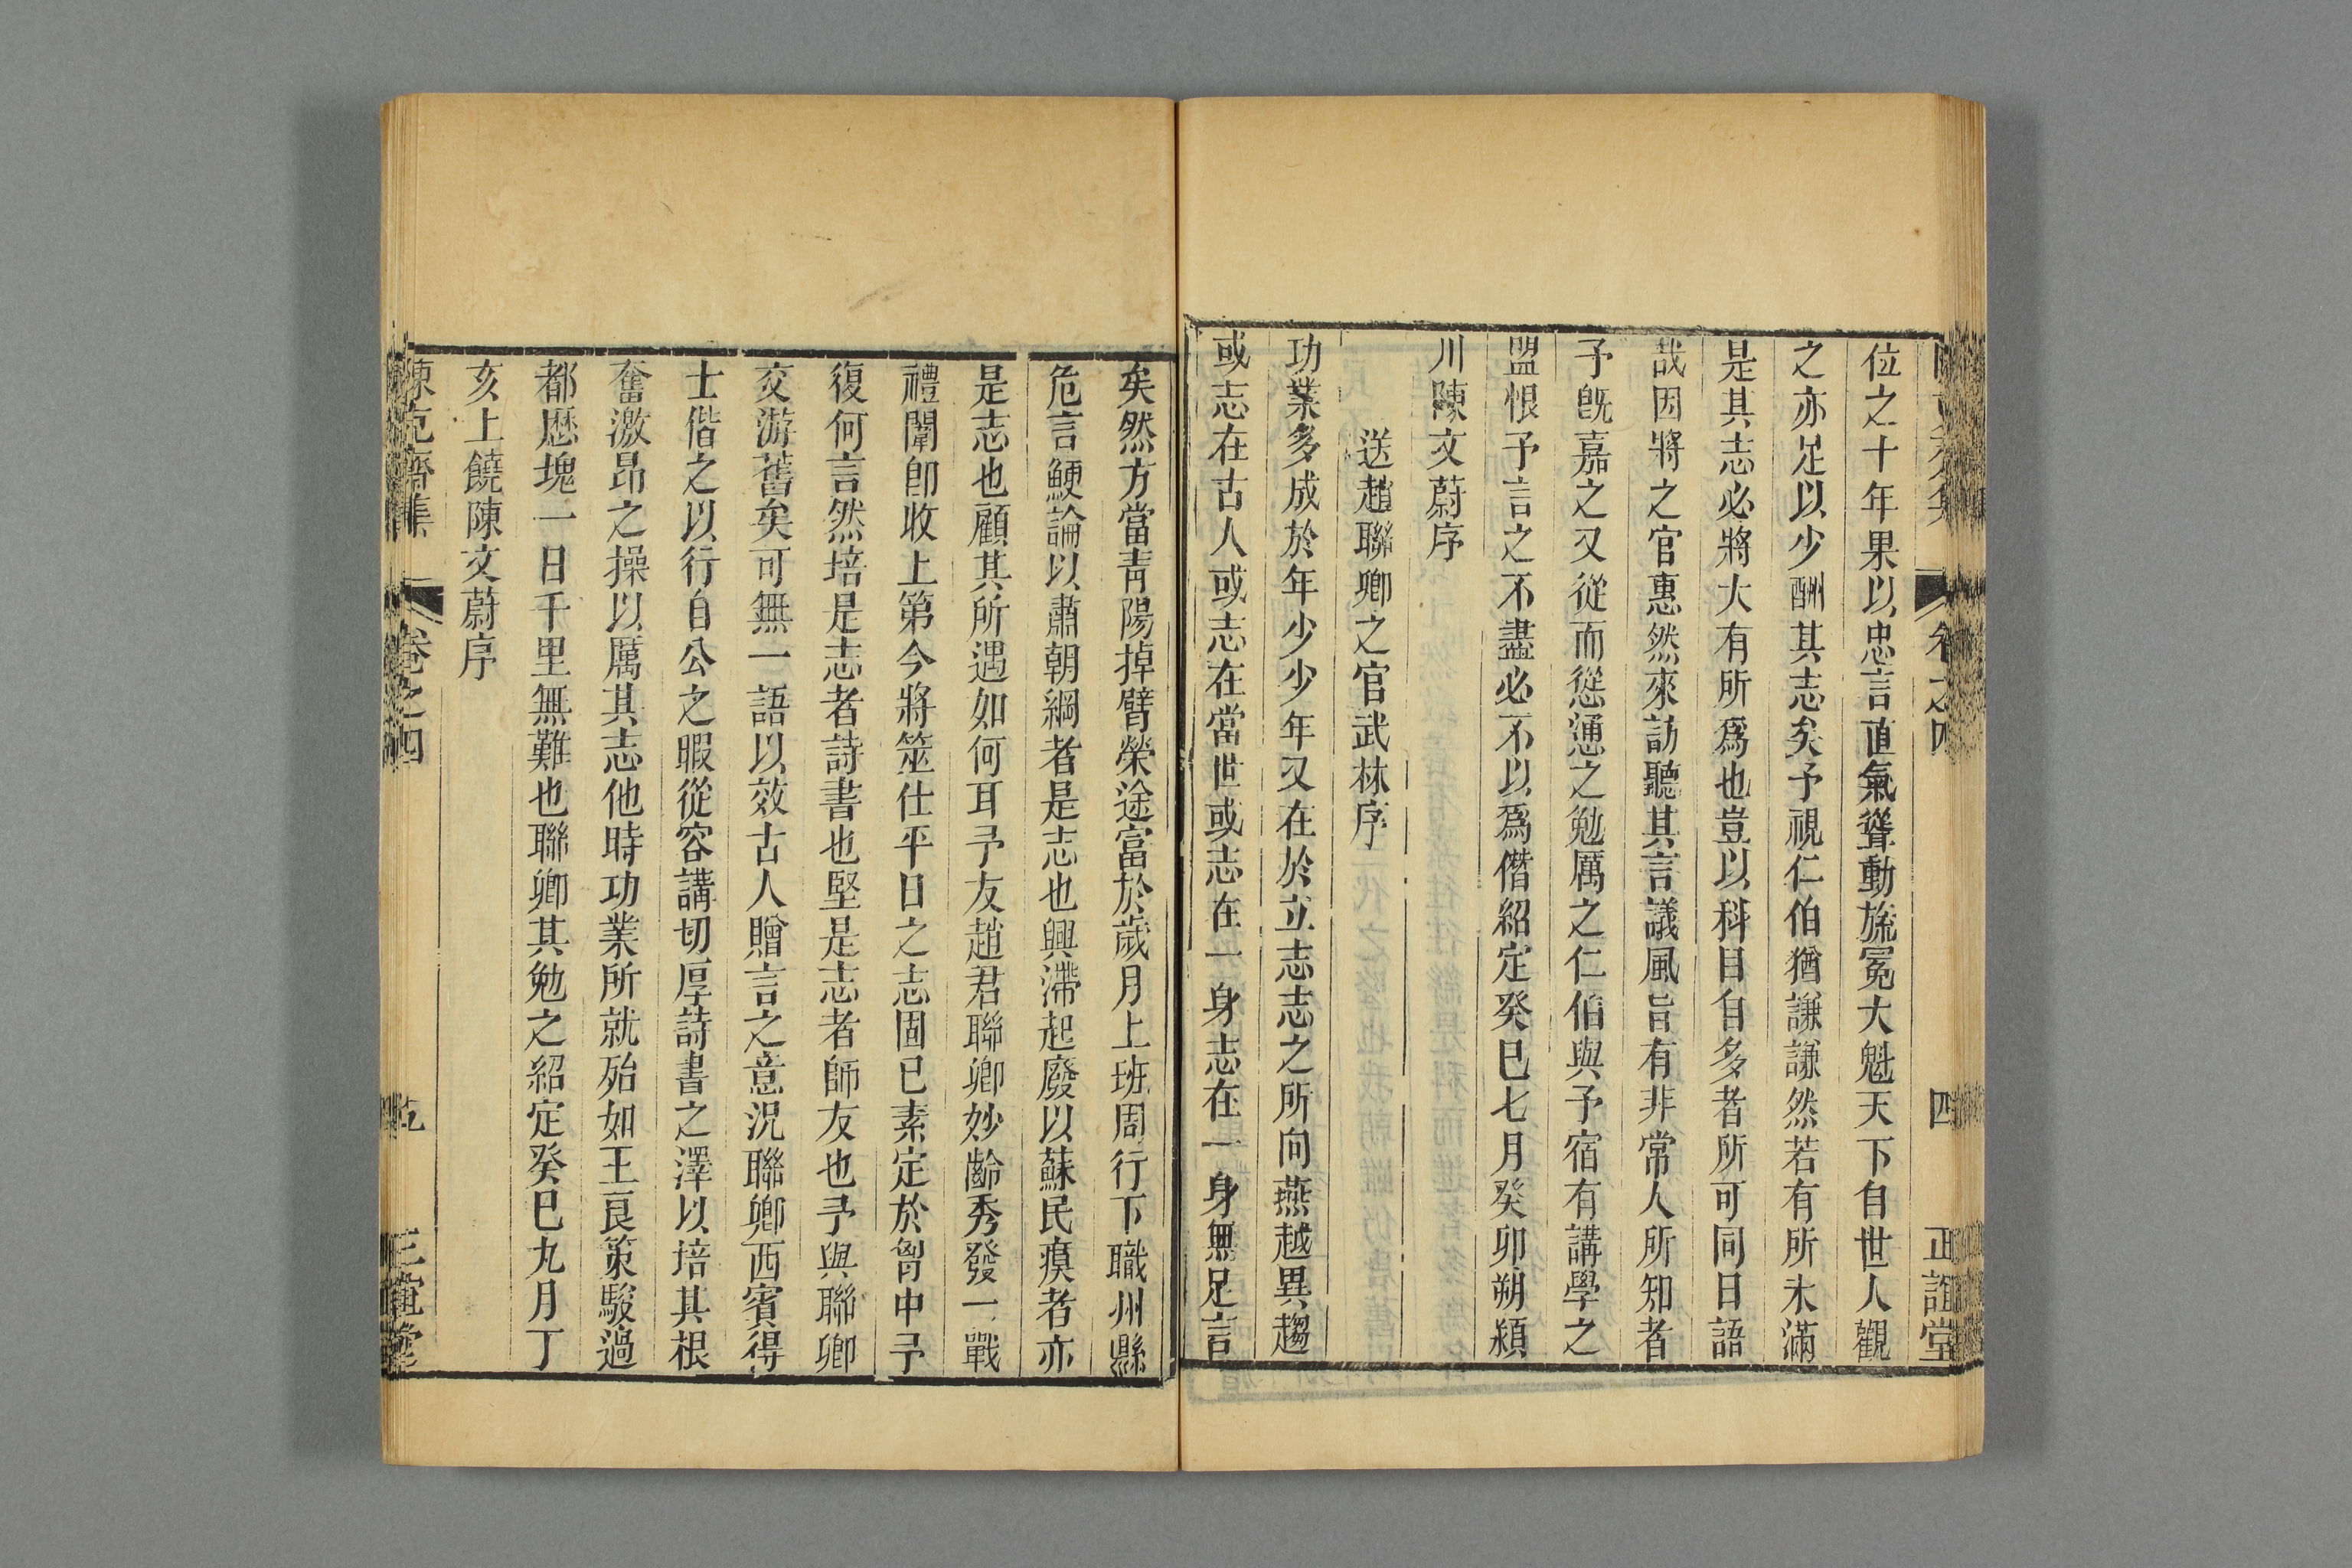 卷之四 四 正誼堂
位之十年果以忠言直氣聳動旒冕大魁天下自世人觀
之亦足以少酬其志矣予視仁伯猶謙謙然若有所未滿
是其志必將大有所爲也豈以科目自多者所可同日語
哉因將之官惠然來訪聽其言議風旨有非常人所知者
予旣嘉之又從而慫慂之勉厲之仁伯與予宿有講學之
盟恨予言之不盡必不以爲僭紹定癸巳七月癸卯朔潁
川陳文蔚序
送趙聯卿之官武林序
功業多成於年少少年又在於立志志之所向燕越異趨
或志在古人或志在當世或志在一身志在一身無足言
矣然方當青陽掉臂榮途富於歲月上班周行下職州縣
危言鯁論以肅朝綱者是志也興滯起廢以蘇民瘼者亦
是志也顧其所遇如何耳予友趙君聯卿妙齡秀發一戰
禮闈卽收上第今將筮仕平日之志固已素定於胷中予
復何言然培是志者詩書也堅是志者師友也予與聯卿
交游舊矣可無一語以效古人贈言之意況聯卿西賓得
士偕之以行自公之暇從容講切厚詩書之澤以培其根
奮激昂之操以厲其志他時功業所就殆如王良策駿過
都歷塊一日千里無難也聯卿其勉之紹定癸巳九月丁
亥上饒陳文蔚序
陳克齋集 卷之四